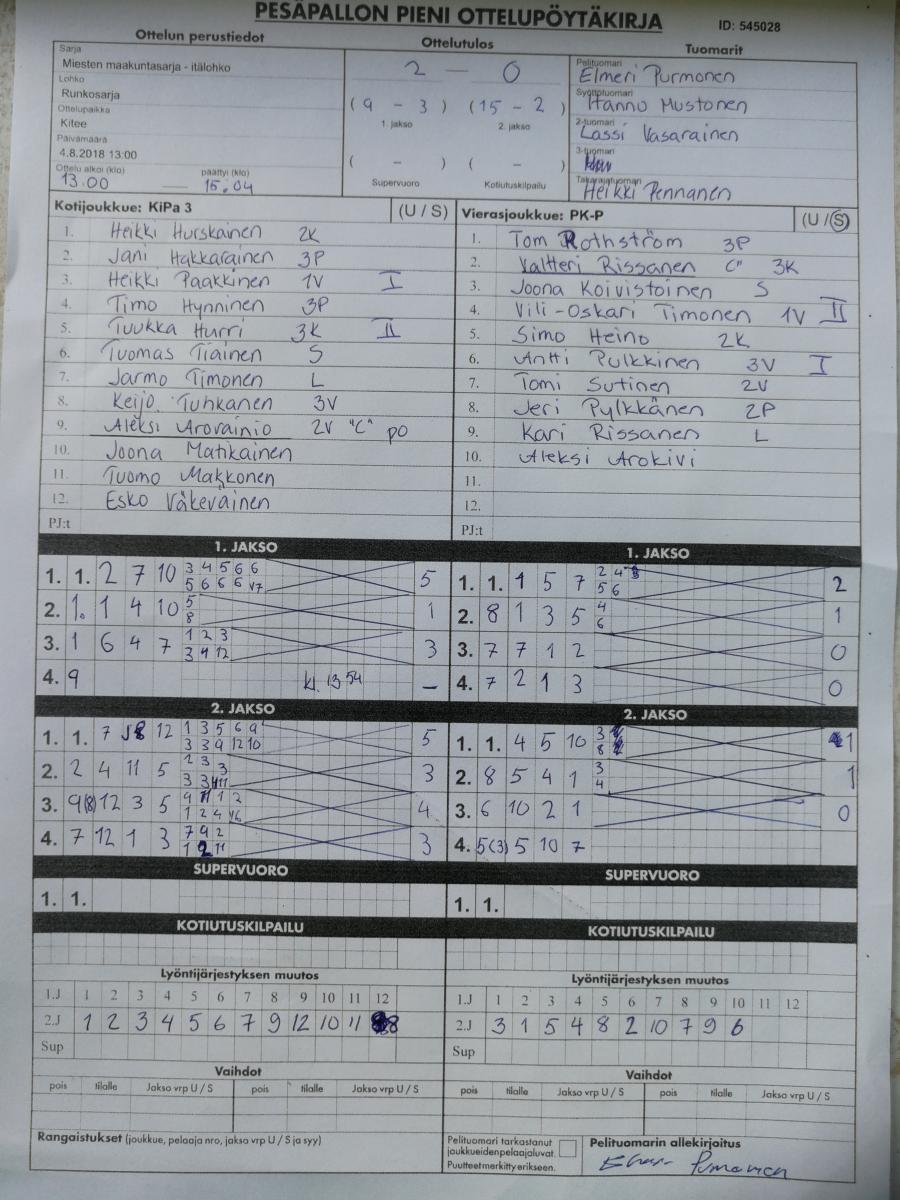 PESÄPALLON PIENI OTTELUPÖYTÄKIRJA
ID: 545028
Ottelun perustiedot
Sarja
Miesten maakuntasarja - itälohko
Lohko
Runkosarja
Ottelupaikka
Kitee
Päivämäärä
4.8.2018 13:00
Ottelu alkoi (klo) päättyi (klo)
13.00 — 15.04
Ottelutulos
2 — 0
( 9 - 3 ) ( 15 - 2 )
1. jakso 2. jakso
( - ) ( - )
Supervuoro Kotiutuskilpailu
Tuomarit
Pelituomari
Elmeri Purmonen
Syöttötuomari
Hannu Mustonen
2-tuomari
Lassi Vasarainen
3-tuomari
Takarajatuomari
Heikki Pennanen
Kotijoukkue: KiPa 3 (U / S)
1. Heikki Hurskainen 2K
2. Jani Hakkarainen 3P
3. Heikki Paakkinen 1V I
4. Timo Hynninen 3P
5. Tuukka Hurri 3K II
6. Tuomas Tiainen S
7. Jarmo Timonen L
8. Keijo Tuhkanen 3V
9. Aleksi Arovainio 2V "C" po
10. Joona Matikainen
11. Tuomo Makkonen
12. Esko Väkeväinen
PJ:t
Vierasjoukkue: PK-P (U / S)
1. Tom Rothström 3P
2. Valtteri Rissanen C" 3K
3. Joona Koivistoinen S
4. Vili-Oskari Timonen 1V II
5. Simo Heino 2K
6. Antti Pulkkinen 3V I
7. Tomi Sutinen 2V
8. Jeri Pylkkänen 2P
9. Kari Rissanen L
10. Aleksi Arokivi
11.
12.
PJ:t
1. JAKSO
1. 1. 2 7 10 3 4 5 6 6 5
5 6 6 6 V7
2. 1. 1 4 10 5 1
8
3. 1 6 4 7 1 2 3 3
3 4 12
4. 9 kl. 13 54 –
1. JAKSO
1. 1. 1 5 7 2 4 2
5 6
2. 8 1 3 5 4 1
6
3. 7 7 1 2 0
4. 7 2 1 3 0
2. JAKSO
1. 1. 7 8 12 1 3 5 6 9 5
3 3 9 12 10
2. 2 4 11 5 2 3 3 3
3 3 11
3. 9(8) 12 3 5 9 11 1 2 4
1 2 4 V6
4. 7 12 1 3 7 9 2 3
1 2 11
2. JAKSO
1. 1. 4 5 10 3 1
8
2. 8 5 4 1 3 1
4
3. 6 10 2 1 0
4. 5(3) 5 10 7
SUPERVUORO
1. 1.
SUPERVUORO
1. 1.
KOTIUTUSKILPAILU
KOTIUTUSKILPAILU
Lyöntijärjestyksen muutos
1.J 1 2 3 4 5 6 7 8 9 10 11 12
2.J 1 2 3 4 5 6 7 9 12 10 11 8
Sup
Lyöntijärjestyksen muutos
1.J 1 2 3 4 5 6 7 8 9 10 11 12
2.J 3 1 5 4 8 2 10 7 9 6
Sup
Vaihdot
pois tilalle Jakso vrp U / S pois tilalle Jakso vrp U / S
Vaihdot
pois tilalle Jakso vrp U / S pois tilalle Jakso vrp U / S
Rangaistukset (joukkue, pelaaja nro, jakso vrp U / S ja syy)
Pelituomari tarkastanut
joukkueiden pelaajaluvat.
Puutteet merkitty erikseen.
Pelituomarin allekirjoitus